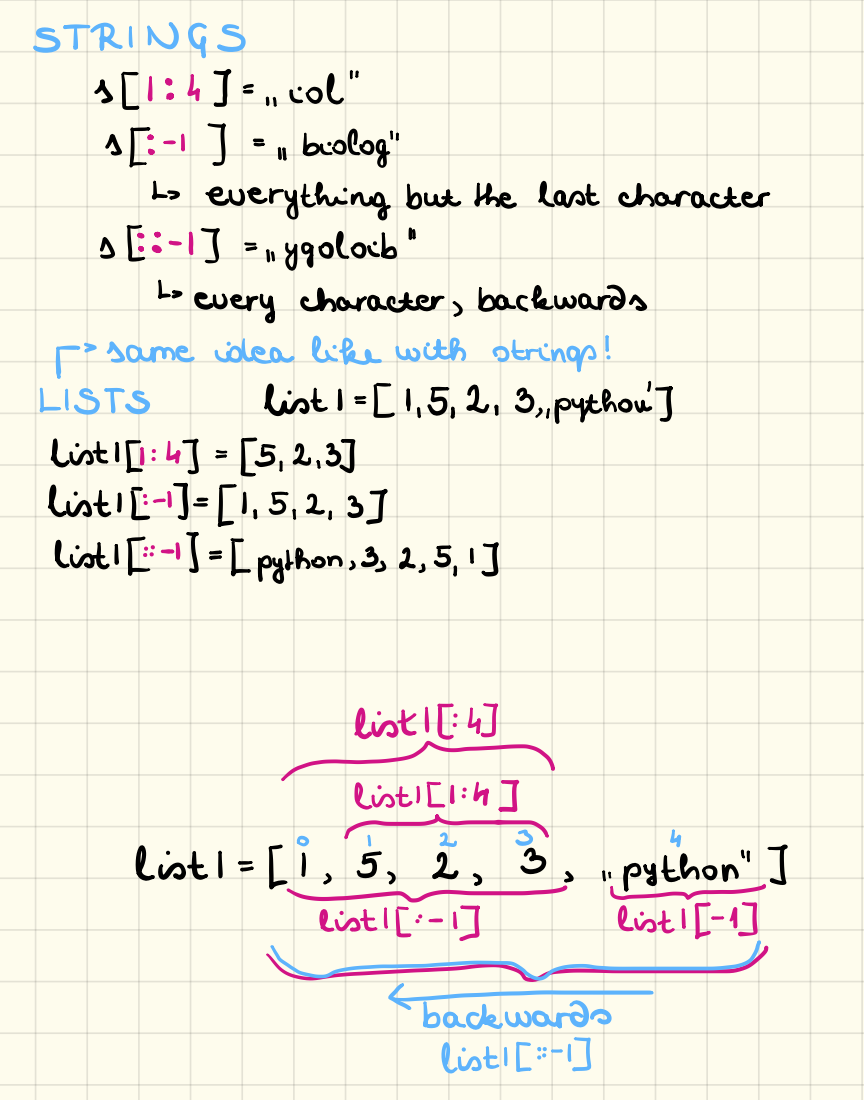 STRINGS
s[1:4] = „iol"
s[:-1] = „biolog"
↳ everything but the last character
s[::-1] = „ygoloib"
↳ every character, backwards
↱ same idea like with strings!
LISTS list1 = [1, 5, 2, 3, „python"]
list1[1:4] = [5, 2, 3]
list1[:-1] = [1, 5, 2, 3]
list1[::-1] = [python, 3, 2, 5, 1]
list1[:4]
list1[1:4]
0 1 2 3 4
list1 = [1, 5, 2, 3, „python"]
list1[:-1] list1[-1]
backwards
list1[::-1]